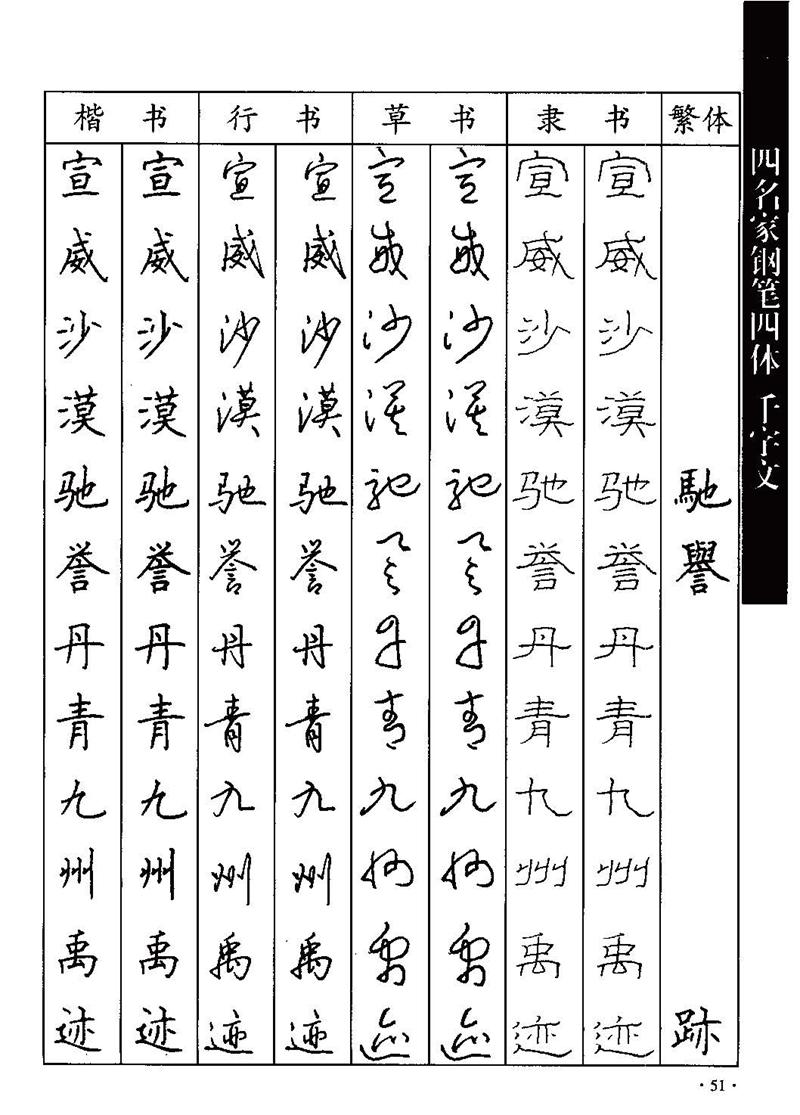 楷书 行书 草书 隶书 繁体
宣 宣 宣 宣 宣 宣 宣 宣
威 威 威 威 威 威 威 威
沙 沙 沙 沙 沙 沙 沙 沙
漠 漠 漠 漠 漠 漠 漠 漠
驰 驰 驰 驰 驰 驰 驰 驰 馳
誉 誉 誉 誉 誉 誉 誉 誉 譽
丹 丹 丹 丹 丹 丹 丹 丹
青 青 青 青 青 青 青 青
九 九 九 九 九 九 九 九
州 州 州 州 州 州 州 州
禹 禹 禹 禹 禹 禹 禹 禹
迹 迹 迹 迹 迹 迹 迹 迹 跡
四名家钢笔四体 千字文
·51·